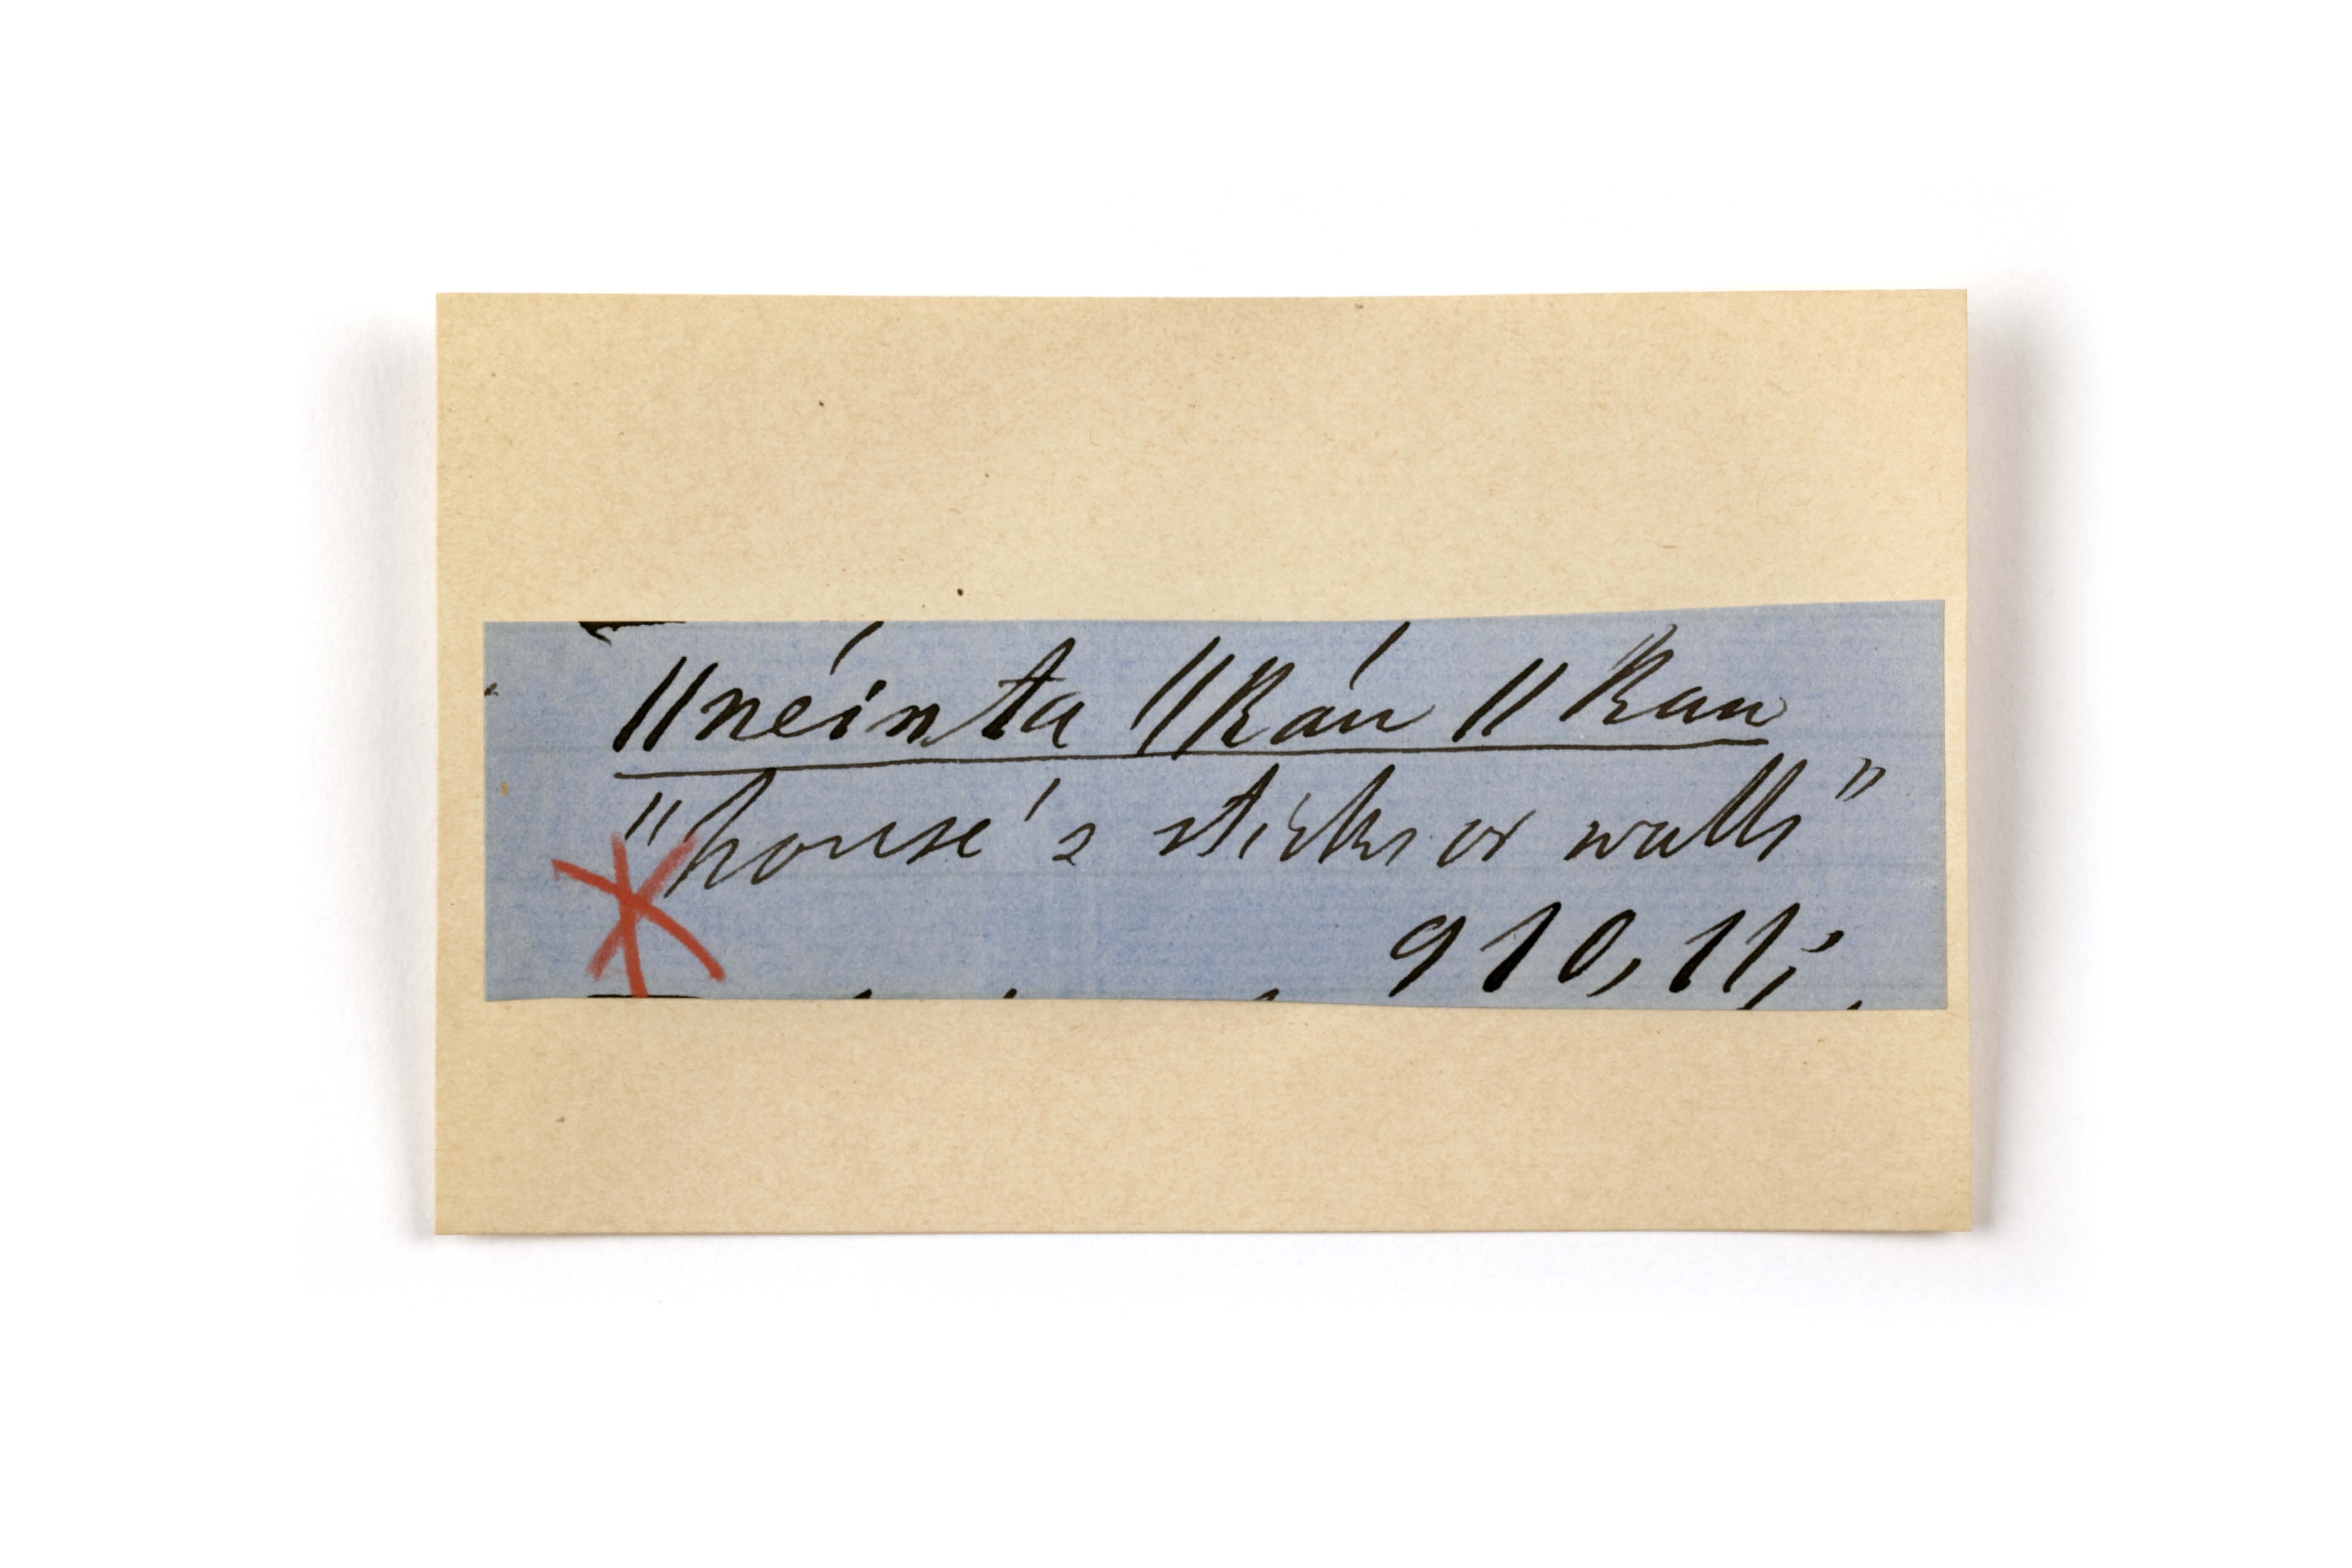 ǁnéinta ǁkáu ǁkau
"house's sticks or walls"
910, 11;